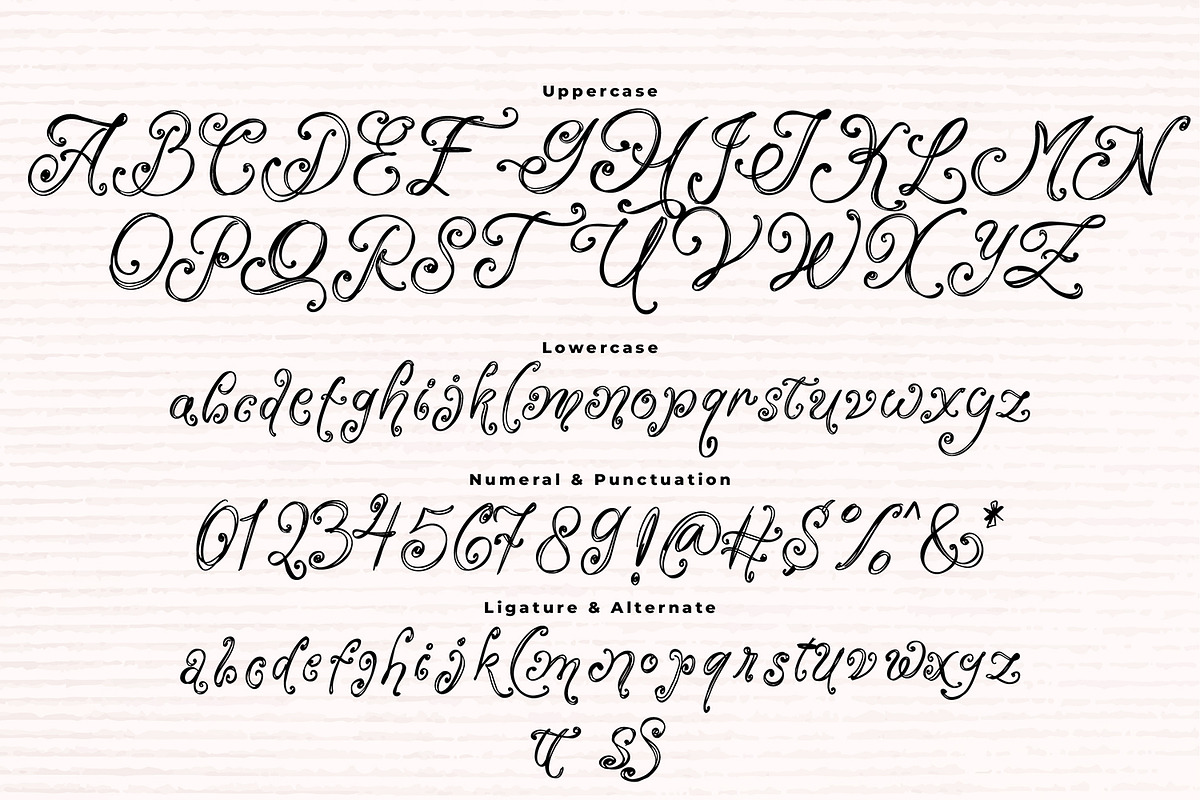 Uppercase
ABCDEFGHIJKLMN
OPQRSTUVWXYZ
Lowercase
abcdefghijklmnopqrstuvwxyz
Numeral & Punctuation
0123456789!@#$%^&*
Ligature & Alternate
abcdefghijklmnopqrstuvwxyz
tt ss